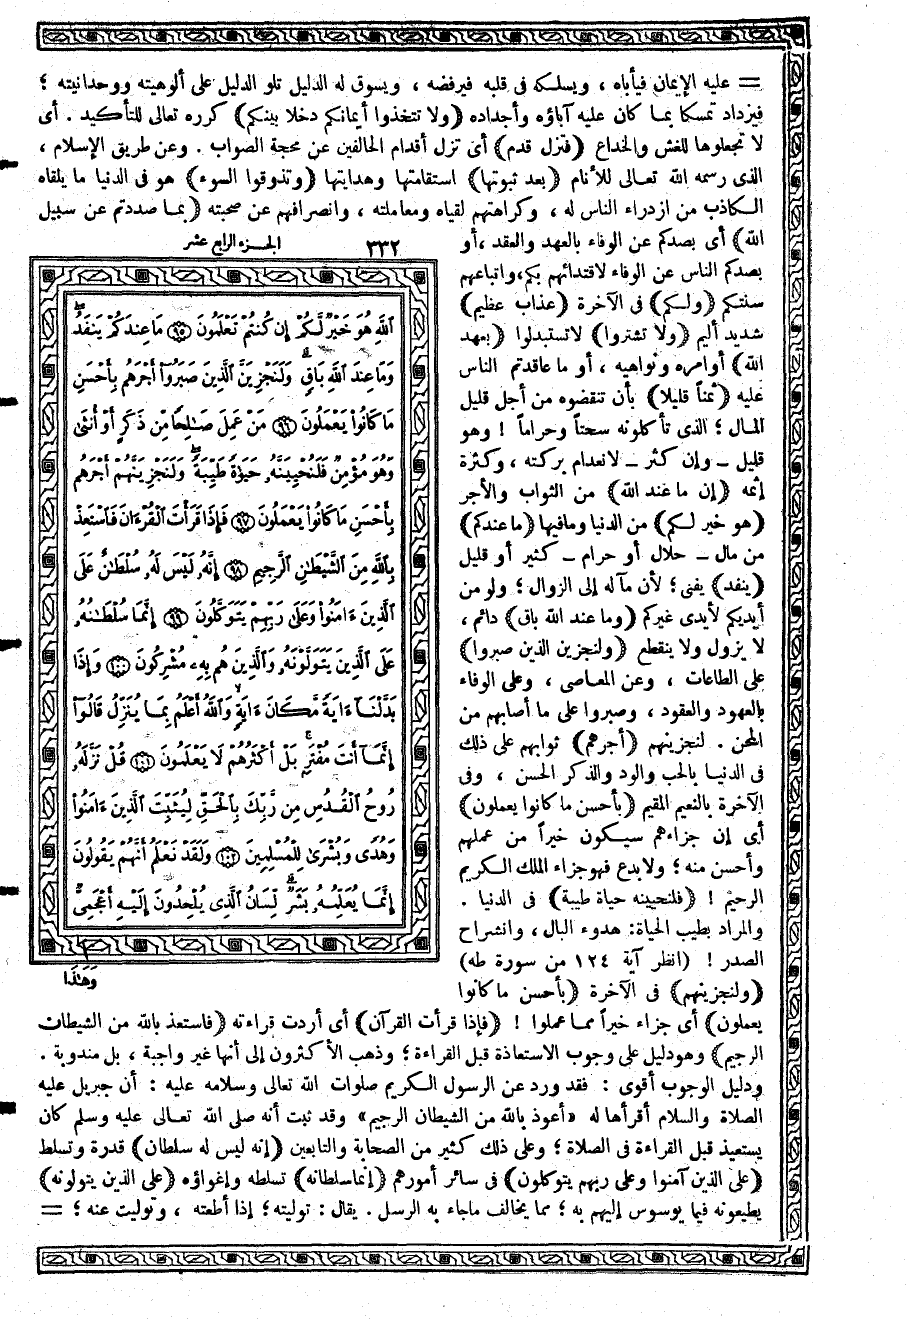 = عليه الإيمان فيأباه ، ويسلكه فى قلبه فيرفضه ، ويسوق له الدليل تلو الدليل على ألوهيته ووحدانيته ؛
فيزداد تمسكا بما كان عليه آباؤه وأجداده (ولا تتخذوا أيمانكم دخلا بينكم) كرره تعالى للتأكيد . أى
لا تجعلوها للغش والخداع (فتزل قدم) أى تزل أقدام الحالفين عن محجة الصواب . وعن طريق الإسلام ،
الذى رسمه الله تعالى للأنام (بعد ثبوتها) استقامتها وهدايتها (وتذوقوا السوء) هو فى الدنيا ما يلقاه
الكاذب من ازدراء الناس له ، وكراهتهم لقياه ومعاملته ، وانصرافهم عن صحبته (بما صددتم عن سبيل
الله) أى بصدكم عن الوفاء بالعهد والعقد ، أو
بصدكم الناس عن الوفاء لاقتدائهم بكم، واتباعهم
سنتكم (ولكم) فى الآخرة (عذاب عظيم)
شديد أليم (ولا تشتروا) لا تستبدلوا (بعهد
الله) أوامره ونواهيه ، أو ما عاقدتم الناس
عليه (ثمناً قليلا) بأن تنقضوه من أجل قليل
المال ؛ الذى تأكلونه سحتاً وحراماً ! وهو
قليل ـ وإن كثر ـ لانعدام بركته ، وكثرة
إثمه (إن ما عند الله) من الثواب والأجر
(هو خير لكم) من الدنيا ومافيها (ما عندكم)
من مال ـ حلال أو حرام ـ كثير أو قليل
(ينفد) يفنى ؛ لأن مآله إلى الزوال ؛ ولو من
أيديكم لأيدى غيركم (وما عند الله باق) دائم ،
لا يزول ولا ينقطع (ولنجزين الذين صبروا)
على الطاعات ، وعن المعاصى ، وعلى الوفاء
بالعهود والعقود ، وصبروا على ما أصابهم من
المحن . لنجزينهم (أجرهم) ثوابهم على ذلك
فى الدنيا بالحب والود والذكر الحسن ، وفى
الآخرة بالنعيم المقيم (بأحسن ما كانوا يعملون)
أى إن جزاءهم سيكون خيراً من عملهم
وأحسن منه ؛ ولا بدع فهو جزاء الملك الكريم
الرحيم ! (فلنحيينه حياة طيبة) فى الدنيا .
والمراد بطيب الحياة: هدوء البال ، وانشراح
الصدر ! (انظر آية ١٢٤ من سورة طه)
(ولنجزينهم) فى الآخرة (بأحسن ما كانوا
٣٣٢ الجزء الرابع عشر
ٱللَّهِ هُوَ خَيْرٌ لَّكُمْ إِن كُنتُمْ تَعْلَمُونَ ﴿٩٥﴾ مَا عِندَكُمْ يَنفَدُ
وَمَا عِندَ ٱللَّهِ بَاقٍ وَلَنَجْزِيَنَّ ٱلَّذِينَ صَبَرُوٓا۟ أَجْرَهُم بِأَحْسَنِ
مَا كَانُوا۟ يَعْمَلُونَ ﴿٩٦﴾ مَنْ عَمِلَ صَـٰلِحًا مِّن ذَكَرٍ أَوْ أُنثَىٰ
وَهُوَ مُؤْمِنٌ فَلَنُحْيِيَنَّهُۥ حَيَوٰةً طَيِّبَةً وَلَنَجْزِيَنَّهُمْ أَجْرَهُم
بِأَحْسَنِ مَا كَانُوا۟ يَعْمَلُونَ ﴿٩٧﴾ فَإِذَا قَرَأْتَ ٱلْقُرْءَانَ فَٱسْتَعِذْ
بِٱللَّهِ مِنَ ٱلشَّيْطَـٰنِ ٱلرَّجِيمِ ﴿٩٨﴾ إِنَّهُۥ لَيْسَ لَهُۥ سُلْطَـٰنٌ عَلَى
ٱلَّذِينَ ءَامَنُوا۟ وَعَلَىٰ رَبِّهِمْ يَتَوَكَّلُونَ ﴿٩٩﴾ إِنَّمَا سُلْطَـٰنُهُۥ
عَلَى ٱلَّذِينَ يَتَوَلَّوْنَهُۥ وَٱلَّذِينَ هُم بِهِۦ مُشْرِكُونَ ﴿١٠٠﴾ وَإِذَا
بَدَّلْنَآ ءَايَةً مَّكَانَ ءَايَةٍ وَٱللَّهُ أَعْلَمُ بِمَا يُنَزِّلُ قَالُوٓا۟
إِنَّمَآ أَنتَ مُفْتَرٍ بَلْ أَكْثَرُهُمْ لَا يَعْلَمُونَ ﴿١٠١﴾ قُلْ نَزَّلَهُۥ
رُوحُ ٱلْقُدُسِ مِن رَّبِّكَ بِٱلْحَقِّ لِيُثَبِّتَ ٱلَّذِينَ ءَامَنُوا۟
وَهُدًى وَبُشْرَىٰ لِلْمُسْلِمِينَ ﴿١٠٢﴾ وَلَقَدْ نَعْلَمُ أَنَّهُمْ يَقُولُونَ
إِنَّمَا يُعَلِّمُهُۥ بَشَرٌ لِّسَانُ ٱلَّذِى يُلْحِدُونَ إِلَيْهِ أَعْجَمِىٌّ
وَهَـٰذَا
يعملون) أى جزاء خيراً مما عملوا ! (فإذا قرأت القرآن) أى أردت قراءته (فاستعذ بالله من الشيطان
الرجيم) وهو دليل على وجوب الاستعاذة قبل القراءة ؛ وذهب الأكثرون إلى أنها غير واجبة ، بل مندوبة .
ودليل الوجوب أقوى : فقد ورد عن الرسول الكريم صلوات الله تعالى وسلامه عليه : أن جبريل عليه
الصلاة والسلام أقرأها له «أعوذ بالله من الشيطان الرجيم» وقد ثبت أنه صلى الله تعالى عليه وسلم كان
يستعيذ قبل القراءة فى الصلاة ؛ وعلى ذلك كثير من الصحابة والتابعين (إنه ليس له سلطان) قدرة وتسلط
(على الذين آمنوا وعلى ربهم يتوكلون) فى سائر أمورهم (إنما سلطانه) تسلطه وإغواؤه (على الذين يتولونه)
يطيعونه فيما يوسوس إليهم به ؛ مما يخالف ماجاء به الرسل . يقال : توليته ؛ إذا أطعته ، وتوليت عنه ؛ =